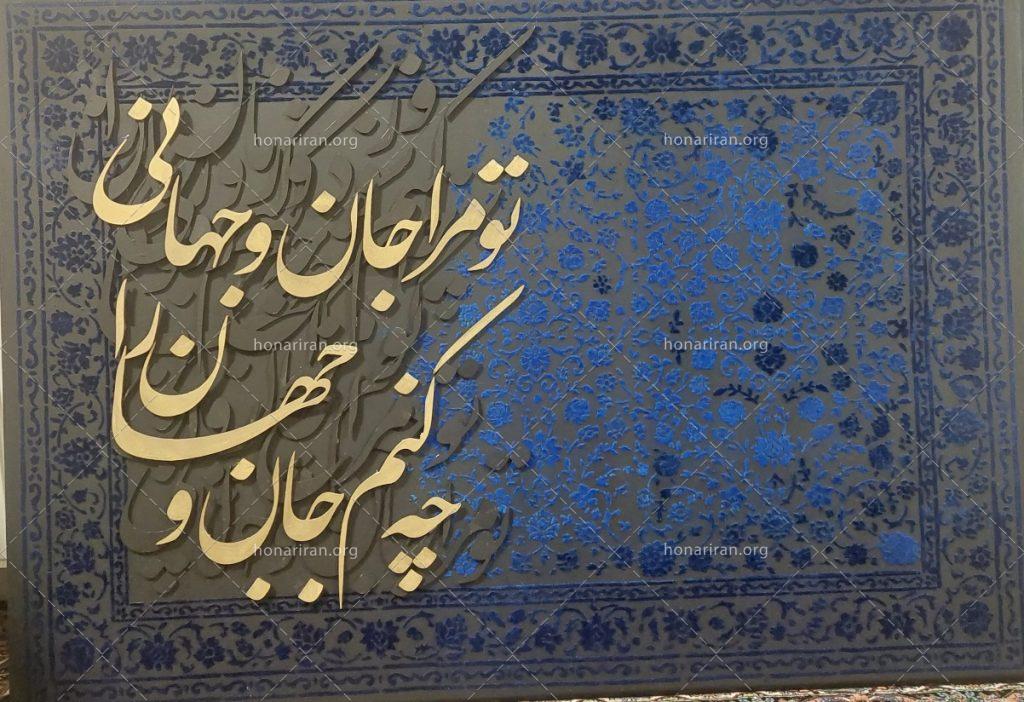 تو مرا جان و جهانی
چه کنم جان و جهان را
honariran.org
honariran.org
honariran.org
honariran.org
honariran.org
honariran.org